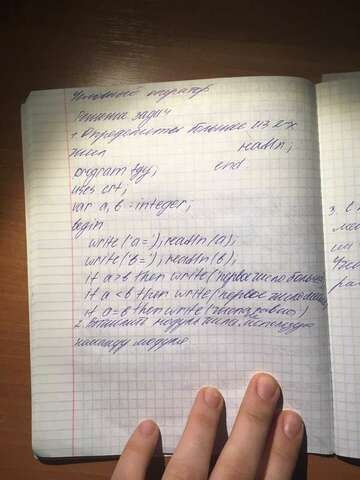 Условный оператор
Решение задач
1 Определить большее из 2-х
чисел readln;
program ggy; end
uses crt;
var a, b : integer;
begin
write('a='); readln(a);
write('b='); readln(b);
if a>b then write('первое число больше
if a<b then write('первое число мень
if a=b then write('числа равно')
2. Вычислить модуль числа используя
команду модуля
3.